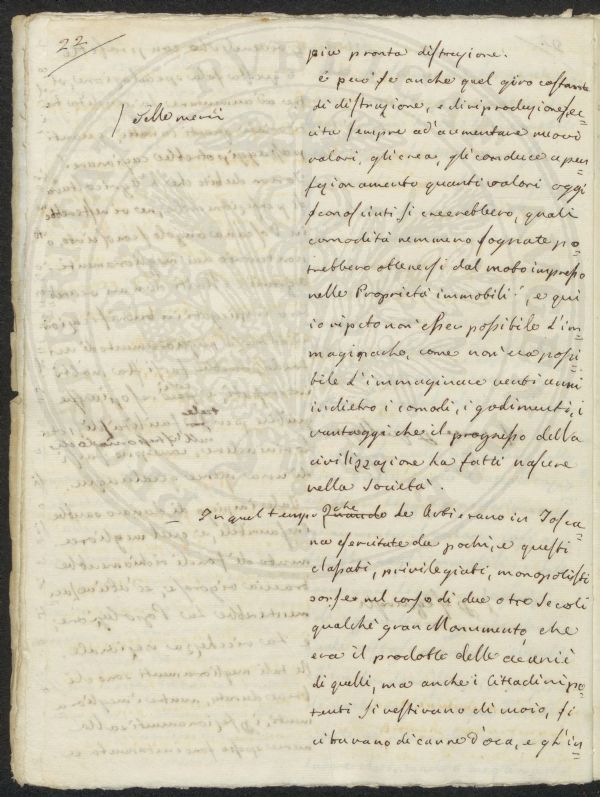 22
delle merci
più pronta distruzione.
E però se anche quel giro costante
di distruzione, e di riproduzione ec-
cita sempre ad'aumentare nuovi
valori, gli crea, gli conduce a per-
fezionamento quanti valori oggi
sconosciuti si creerebbero, quali
comodità nemmeno sognate po-
trebbero ottenersi dal moto impresso
nelle Proprietà immobili?, e qui
io ripeto non esser possibile l'im-
maginarlo, come non era possi-
bile l'immaginare venti anni
indietro i comodi, i godimenti, i
vantaggi che il progresso della
civilizzazione ha fatti nascere
nella Società.
– In quel tempo che quando le Arti erano in Tosca-
na esercitate da pochi, e questi
classati, privilegiati, monopolisti
sorse nel corso di due o tre Secoli
qualche gran Monumento, che
era il prodotto delle
di quelli, ma anche i Cittadini po-
tenti si vestivano di
cibavano di carne d'oca, e gl'in-